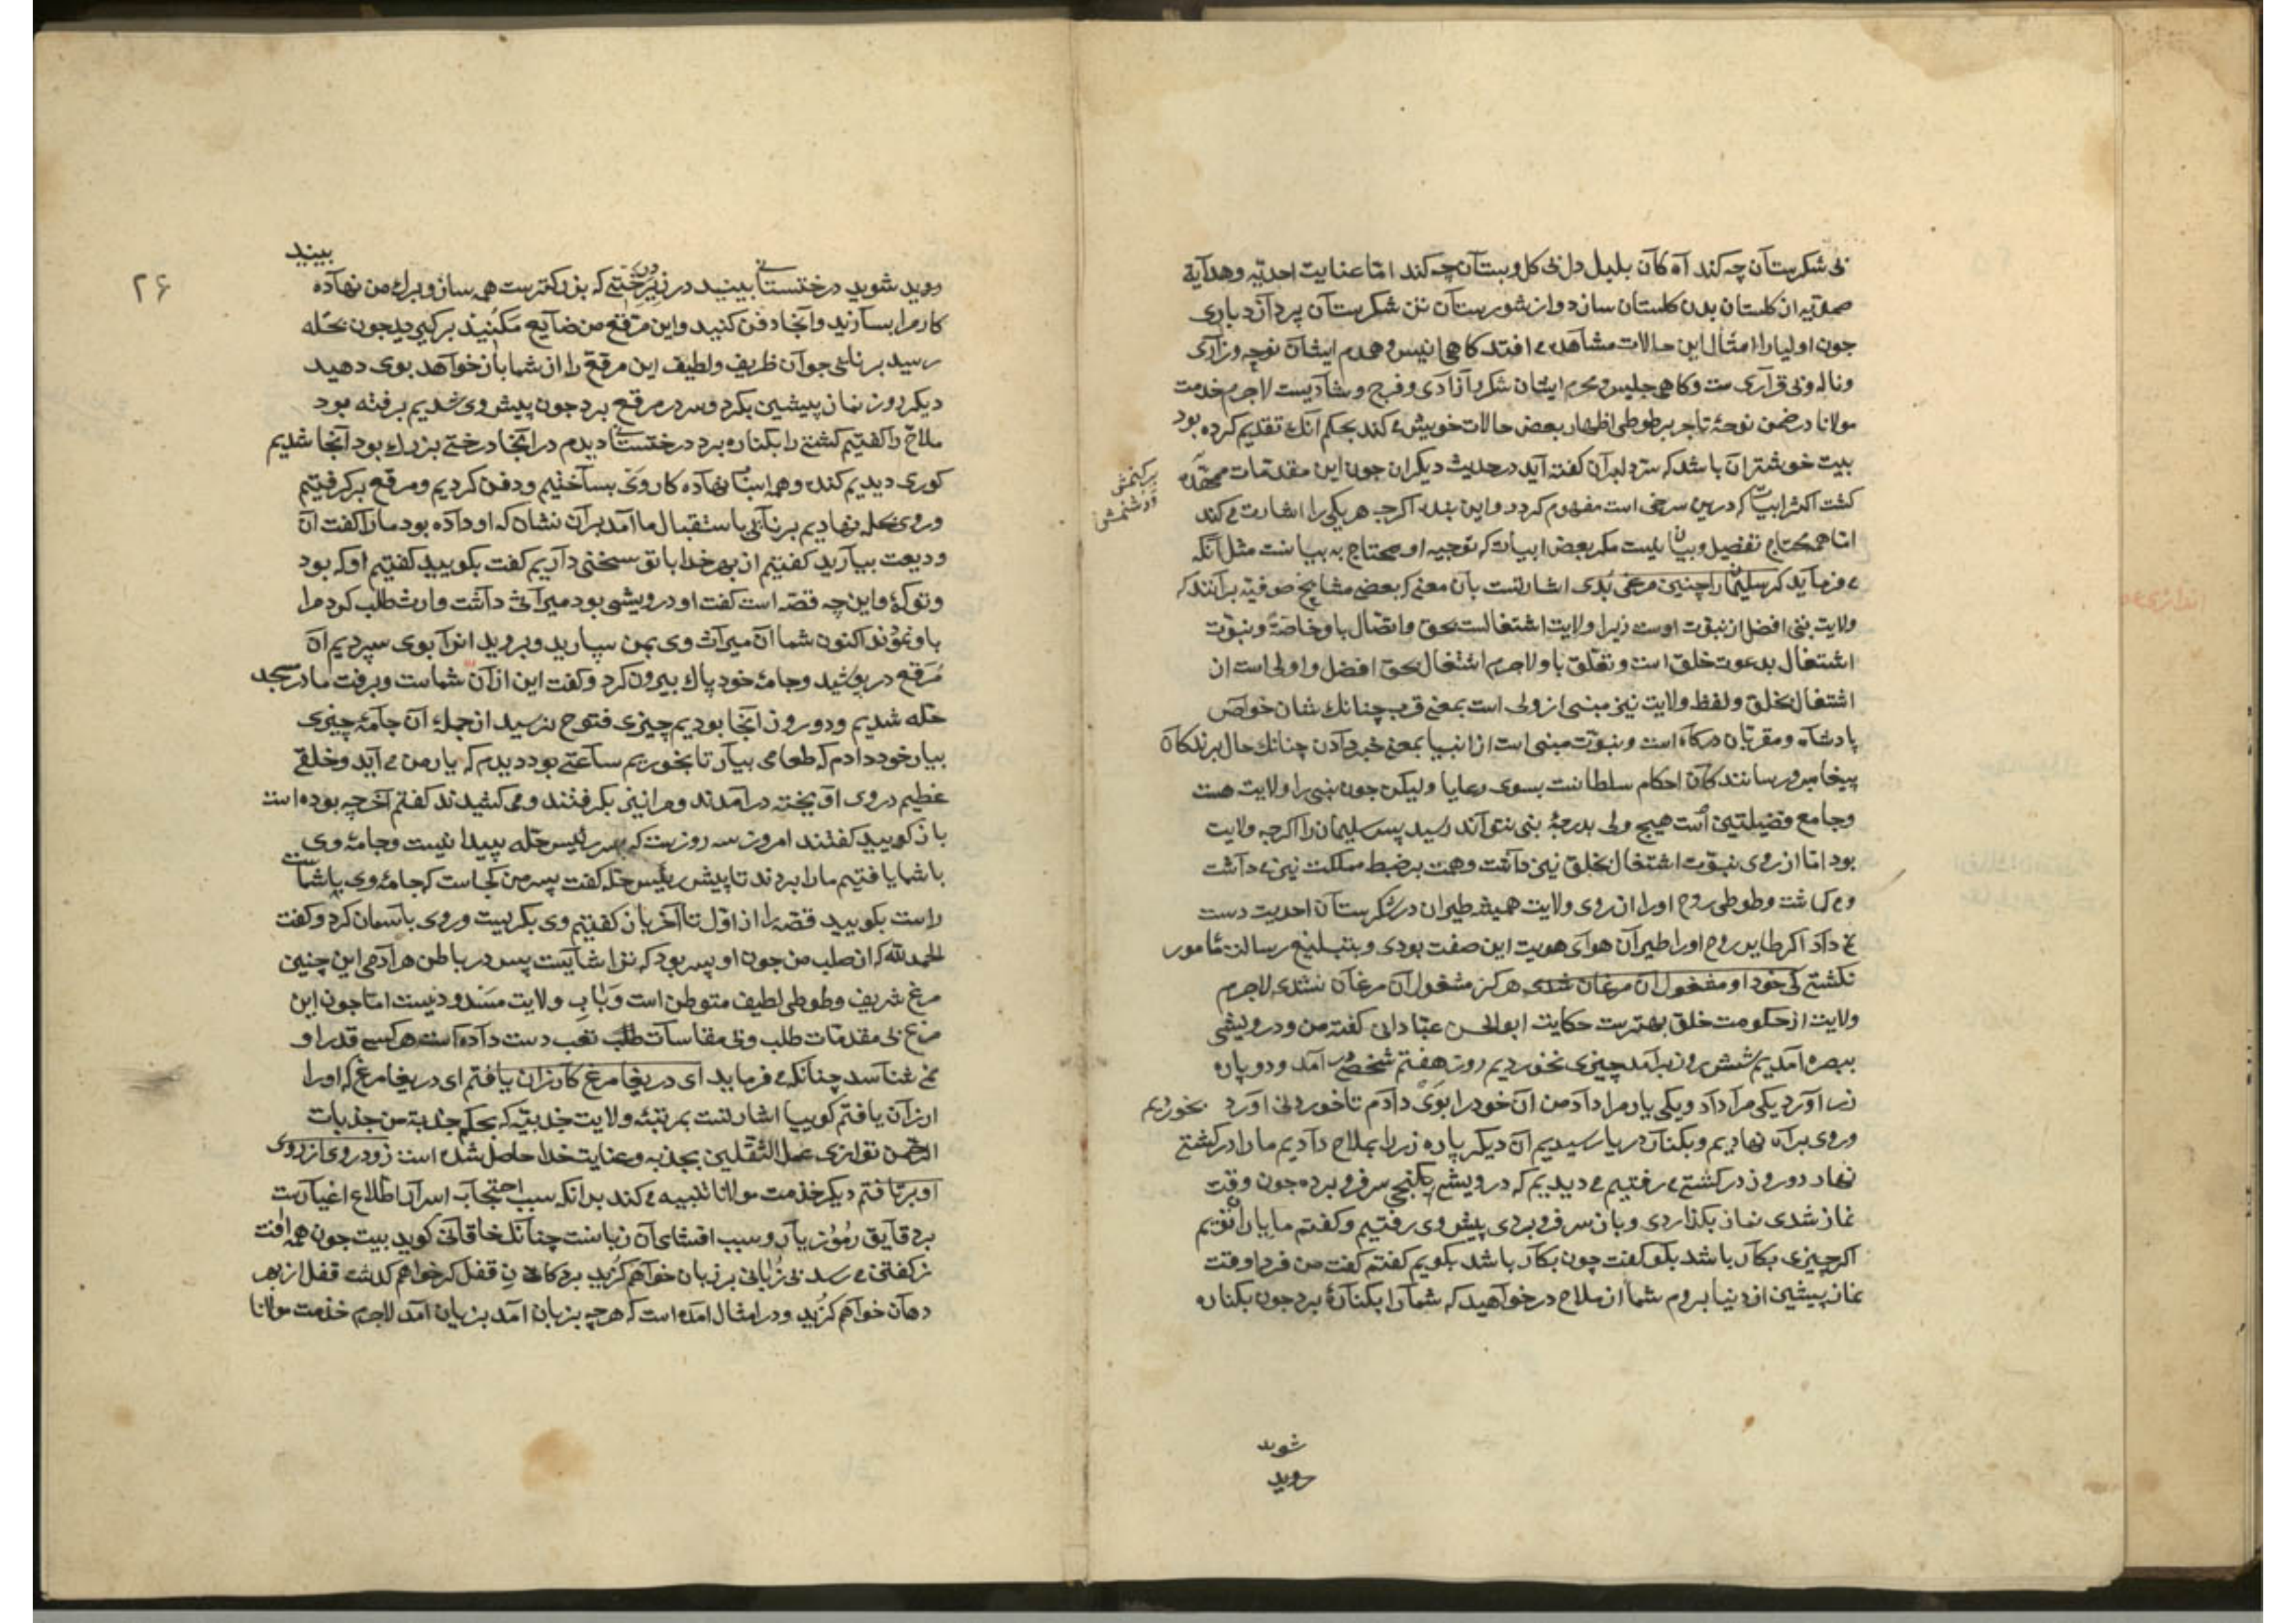 بی شکرستان چه کند آه کان بلبل دل بی کل و بستان چه کند اما عنایت احدیه و هدایة
صمدیه از کلستان بدن کلستان سازد و از شورستان تن شکرستان پردازد باری
جون اولیا را امثال این حالات مشاهده می افتد کاهی انیس و همدم ایشان نوحه و زاری
و ناله و بی قراری ست و کاهی جلیس و محرم ایشان شکر و آزادی و فرح و شادیست لاجرم خدمت
مولانا در ضمن نوحۀ تاجر بر طوطی اظهار بعض حالات خویش می کند بحکم انک تقدیم کرده بود
بیت خوشتر ان باشد که سر دلبران کفته آید در حدیث دیکران جون این مقدمات ممهّد
کشت اکثر ابیات که درین سرخی است مفهوم کردد و این بنده اکرچه هر یکی را اشارت می کند
اما همه محتاج تفصیل و بیان نیست مکر بعض ابیات که توجیه او محتاج به بیانست مثل آنکه
می فرماید که سلیمان را چنین مرغی بُدی اشارتست بآن معنی که بعضی مشایخ صوفیه برآنند که
ولایت نبی افضل از نبوّت اوست زیرا ولایت اشتغالست بحق و اتصال باو خاصةً و نبوّت
اشتغال بدعوت خلق است و تعلّق باو لاجرم اشتغال بحق افضل و اولی است از
اشتغال بخلق و لفظ ولایت نیز مبنی از ولی است بمعنی قرب چنانک شان خواص
پادشاه و مقرّبان درکاه است و نبوّت مبنی است از انبیا بمعنی خبر دادن چنانك حال برندکان
پیغام و رسانندکان احکام سلطانست بسوی رعایا ولیکن جون نبی را ولایت هست
و جامع فضیلتین است هیچ ولی بدرجۀ نبی نتواند رسید پس سلیمان را اکرچه ولایت
بود اما از روی نبوّت اشتغال بخلق نیز داشت و همت بر ضبط مملکت نیز می داشت
و می کماشت و طوطی روح اورا از روی ولایت همیشه طیران در شکرستان احدیت دست
می داد اکر طایر روح اورا طیران هوای هویت این صفت بودی و بتبلیغ رسالت مأمور
نکشتی کی خود او مشغول ان مرغان شدی هرکز مشغول آن مرغان نشدی لاجرم
ولایت از حکومت خلق بهترست حکایت ابو الحسن عبّادانی کفته من و درویشی
ببصره آمدیم شش روز برآمد چیزی نخوردیم روز هفتم شخصی آمد و دو پاره
زر اورد یکی مرا داد و یکی یار مرا داد من آن خود را بوی دادم تا خوردنی اورد بخوردیم
و روی براه نهادیم و بکنار دریا رسیدیم ان دیکر پاره زر را بملاح دادیم ما را در کشتی
نهاد دو روز در کشتی می رفتیم می دیدیم که درویشی بکنجی سر فرو برده جون وقت
نماز شدی نماز بکذاردی و باز سر فرو بردی پیش وی رفتیم و کفتم ما یاران توییم
اکر چیزی بکار باشد بکو کفت چون بکار باشد بکویم کفتم کفت من فردا وقت
نماز پیشین از دنیا بروم شما از ملاح درخواهید که شمارا بکنارۀ برد جون بکناره
شوید
روید
بیند
روید شوید درختستانی بینید در زیر درختی که بزرکترست همه ساز و برك من نهاده
کار مرا بسازید و آنجا دفن کنید و این مرقع من ضایع مکنید برکیرید جون بحله
رسید برنائی جوان ظریف و لطیف این مرقع را از شما باز خواهد بوی دهید
دیکر روز نماز پیشین بکرد و سر در مرقع برد جون پیش وی شدیم برفته بود
ملاح را کفتیم کشتی را بکناره برد درختستانی دیدم در انجا درختی بزرك بود آنجا شدیم
کوری دیدیم کنده و همه اسباب نهاده کار وی بساختیم و دفن کردیم و مرقع برکرفتیم
و روی بحله نهادیم برنائی باستقبال ما آمد بر آن نشان که او داده بود مارا کفت آن
ودیعت بیارید کفتیم از بهر خدا با تو سخنی داریم کفت بکویید کفتیم او که بود
و تو کۀ و این چه قصّه است کفت او درویشی بود میراثی داشت وارث طلب کرد مرا
باو نمودند اکنون شما آن میراث وی بمن سپارید و بروید انرا بوی سپردیم ان
مُرقع در پوشید و جامۀ خود پاك بیرون کرد و کفت این از آن شماست و برفت ما در مسجد
حله شدیم و دو روز آنجا بودیم چیزی فتوح نرسید از جملۀ آن جامۀ چیزی
بیار خود دادم که طعامی بیار تا بخوریم ساعتی بود دیدم که یار من می آید و خلقی
عظیم در وی آویخته درآمدند و مرا نیز بکرفتند و می کشیدند کفتم آخر چه بوده است
باز کویید کفتند امروز سه روزست که پسر رئیس حله پیدا نیست و جامۀ وی
با شما یافتیم مارا بردند تا پیش رئیس حله کفت پسر من کجاست که جامۀ وی باشماست
راست بکویید قصّه را از اوّل تا آخر باز کفتیم وی بکریست و روی بآسمان کرد و کفت
الحمد لله که از صلب من جون او پسر بود که ترا شایست پس در باطن هر آدمی این چنین
مرغ شریف و طوطی لطیف متوطن است و بَابِ ولایت مسدود نیست اما جون این
مرغ بی مقدمات طلب و بی مقاسات تعب دست داده است هر کسی قدر او
نمی شناسد چنانکه می فرماید ای دریغا مرغ کارزان یافتم ای دریغا مرغ که اورا
ارزان یافتم کوییا اشارتست بمرتبۀ ولایت جذبیّه که بحکم جذبة من جذبات
الرحمن توازی عمل الثقلین بجذبه و عنایت خدا حاصل شده است زود روی از روی
او برتافتم دیکر خدمت مولانا تنبیه می کند بدانکه سبب احتجاب اسرار اطلاع اغیارست
بر دقایق رموز یار و سبب افشای آن زبانست چنانك خاقانی کوید بیت جون همه افت
ز کفتن می رسد بی زُبانی بر زبان خواهم کزید بر دکان قفل کر خواهم کذشت قفل از بهر
دهان خواهم کزید و در امثال امده است که هرچه بزبان امد بزیان آمد لاجرم خدمت مولانا
۲۶